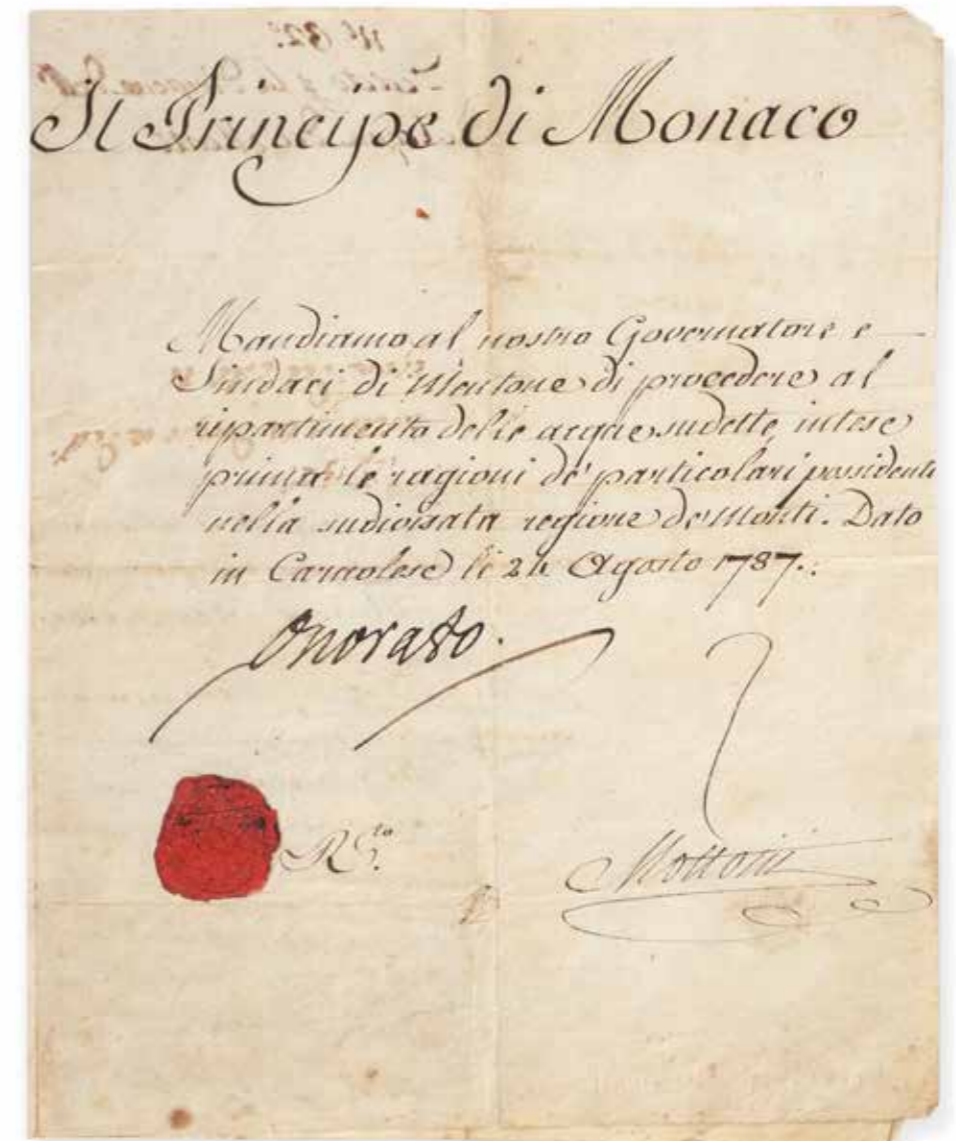 Il Principe di Monaco
Mandiamo al nostro Governatore e
Sindaci di Mentone di procedere al
ripartimento delle acque sudette, intese
prima le ragioni de' particolari possidenti
nella sudivisata regione de Monti. Dato
in Carnolese li 24 Agosto 1787.
Onorato.
R.to